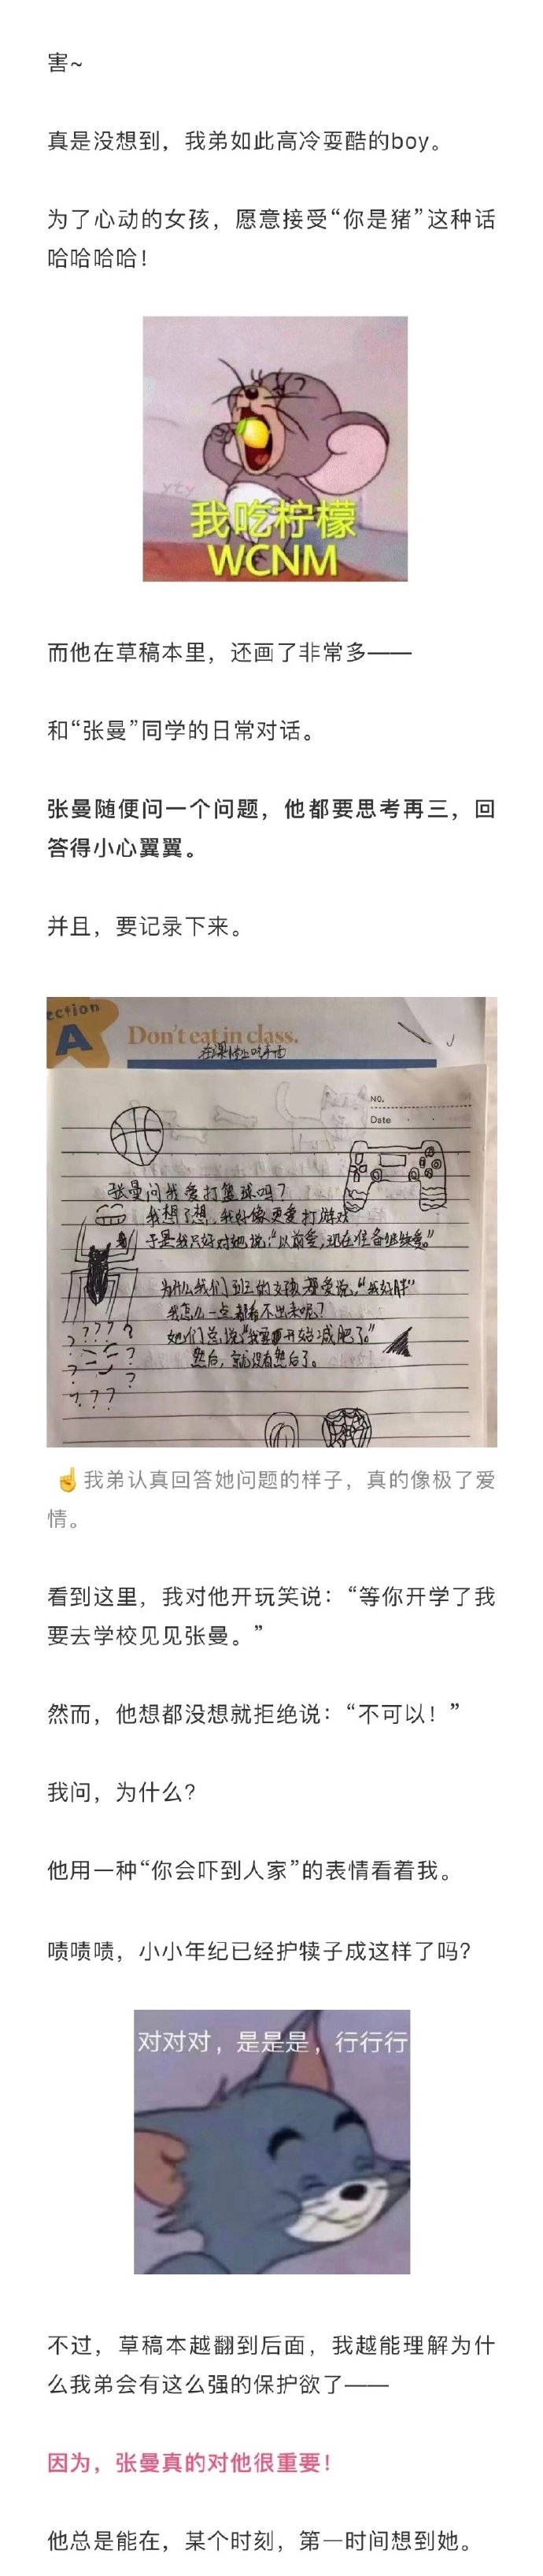 害~
真是没想到，我弟如此高冷耍酷的boy。
为了心动的女孩，愿意接受“你是猪”这种话
哈哈哈哈！
yty
我吃柠檬
WCNM
而他在草稿本里，还画了非常多——
和“张曼”同学的日常对话。
张曼随便问一个问题，他都要思考再三，回
答得小心翼翼。
并且，要记录下来。
ection
A
Don't eat in class.
在课堂上吃东西
NO.
Date
张曼问我爱打篮球吗？
我想了想，我好像更爱打游戏
于是我只好对她说：“以前爱，现在准备继续爱。”
为什么我们班的女孩都爱说，“我好胖”
我怎么一点都看不出来呢？
她们总说“我要开始减肥了。”
然后，就没有然后了。
? ? ? ?
? ?
? ?
? ? ?
☝️我弟认真回答她问题的样子，真的像极了爱
情。
看到这里，我对他开玩笑说：“等你开学了我
要去学校见见张曼。”
然而，他想都没想就拒绝说：“不可以！”
我问，为什么？
他用一种“你会吓到人家”的表情看着我。
啧啧啧，小小年纪已经护犊子成这样了吗？
对对对，是是是，行行行
不过，草稿本越翻到后面，我越能理解为什
么我弟会有这么强的保护欲了——
因为，张曼真的对他很重要！
他总是能在，某个时刻，第一时间想到她。